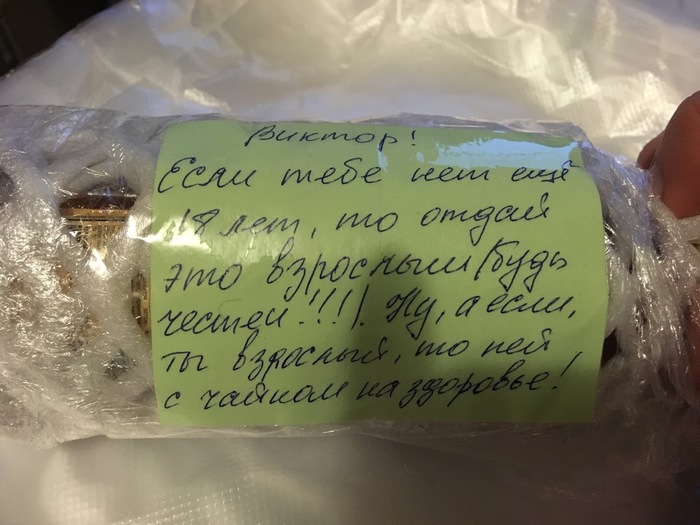 Виктор!
Если тебе нет ещё
18 лет, то отдай
это взрослым (будь
честен!!!). Ну, а если,
ты взрослый, то пей
с чайком на здоровье!